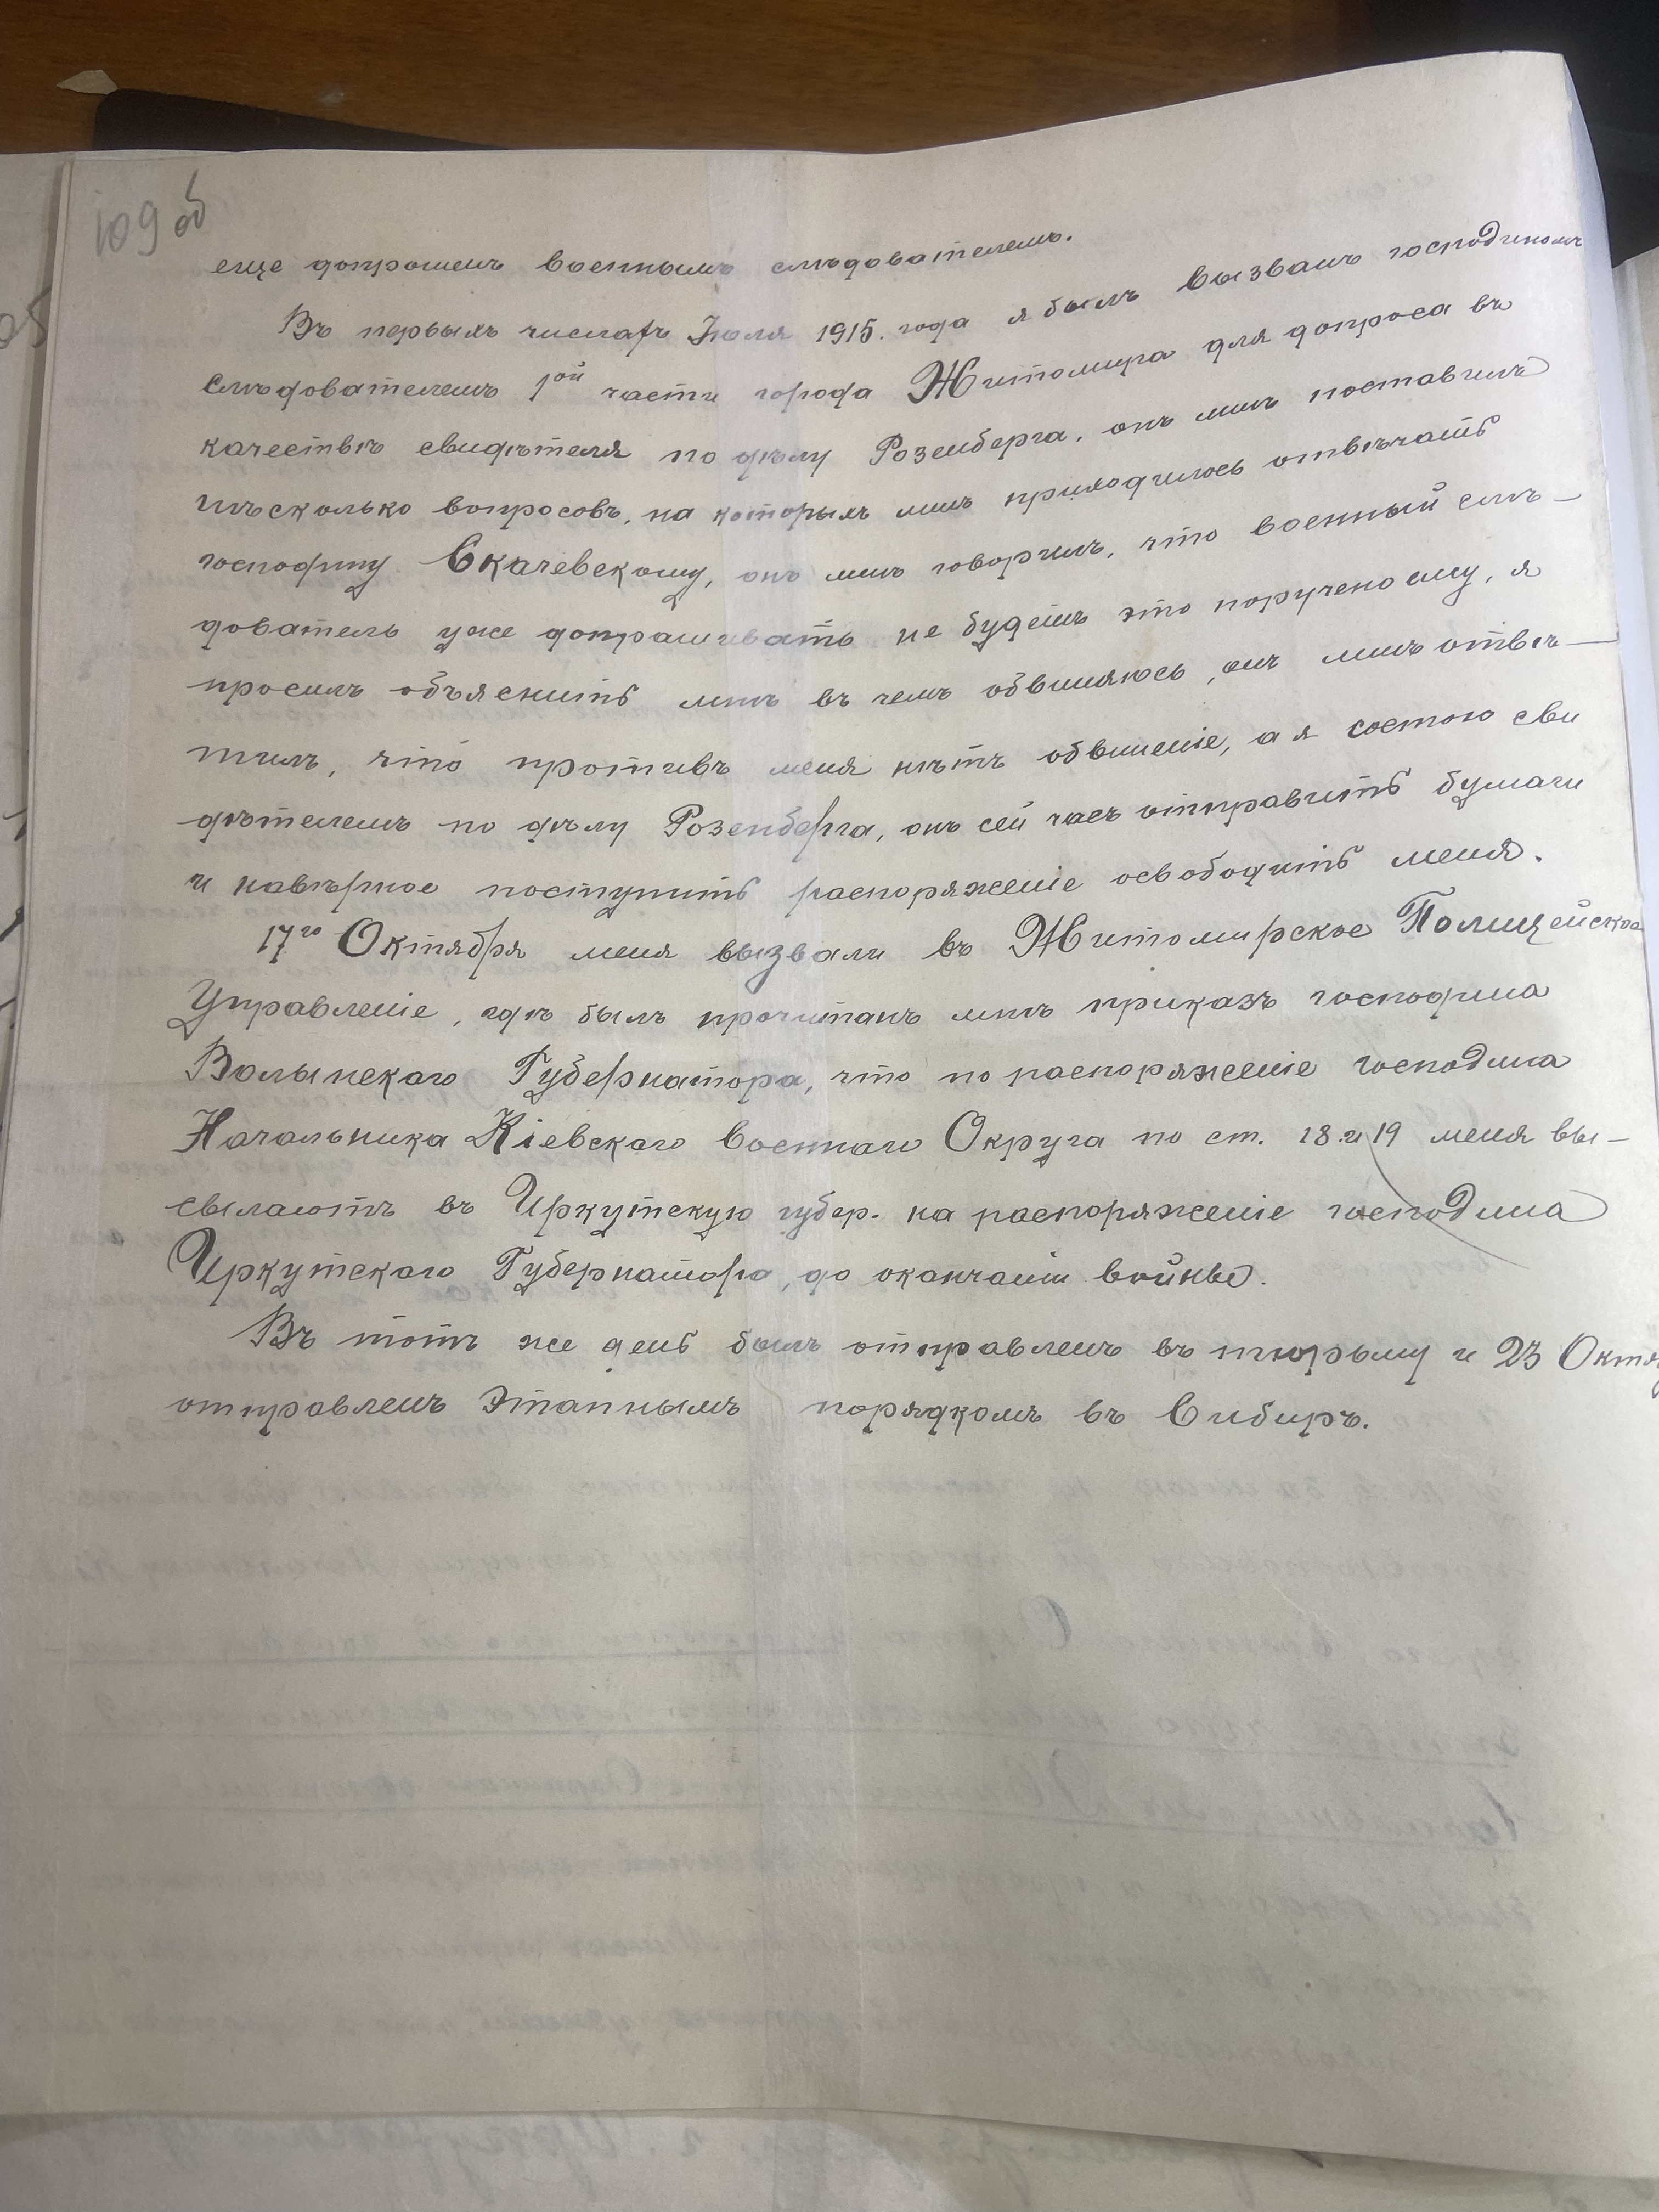 109 об
еще допрошенъ военнымъ слѣдователемъ.
Въ первыхъ числахъ Іюля 1915. года я былъ вызванъ господиномъ
Слѣдователемъ 1ой части города Житомира для допроса въ
качествѣ свидѣтеля по дѣлу Розенберга, онъ мнѣ поставилъ
нѣсколько вопросовъ, на которыхъ мнѣ приходилось отвѣчать
господину Скачевскому, онъ мнѣ говорилъ, что военный слѣ-
дователь уже допрашивать не будетъ это поручено ему, я
просилъ объяснить мнѣ въ чемъ обвиняюсь, онъ мнѣ отвѣ-
тилъ, что противъ меня нѣтъ обвиненіе, а я состою сви
дѣтелемъ по дѣлу Розенберга, онъ сей часъ отправитъ бумаги
и навѣрное поступитъ распоряженіе освободить меня.
17го Октября меня вызвали въ Житомирское Полицейское
Управленіе, гдѣ былъ прочитанъ мнѣ приказъ господина
Волынскаго Губернатора, что по распоряженіе господина
Начальника Кіевскаго Военнаго Округа по ст. 18 и 19 меня вы-
сылаютъ въ Иркутскую губер. на распоряженіе господина
Иркутскаго Губернатора, до окончаніи войны.
Въ тотъ же день былъ отправленъ въ тюрьму и 23 Октя
отправленъ этапнымъ порядкомъ въ Сибирь.